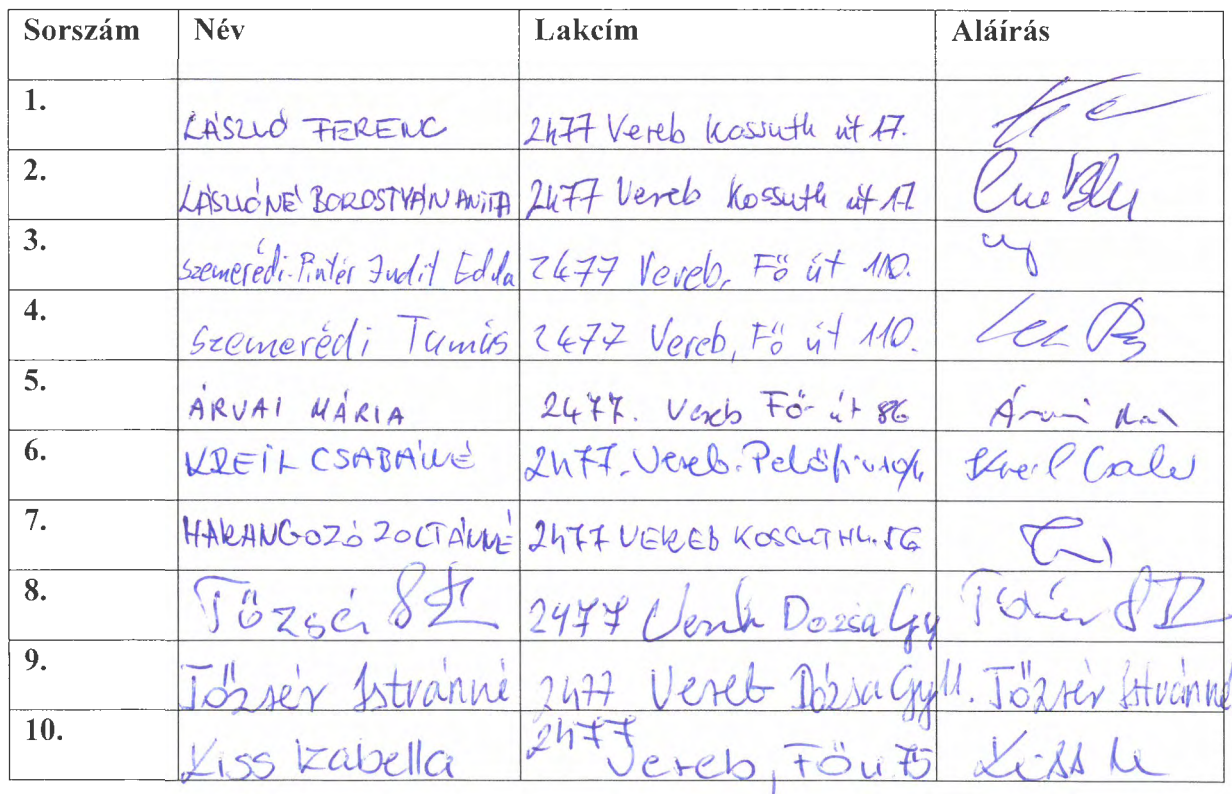 Sorszám Név Lakcím Aláírás
1. LÁSZLÓ FERENC 2477 Vereb Kossuth út 17.
2. LÁSZLÓNÉ BOROSTYÁN ANITA 2477 Vereb Kossuth út 17
3. Szemerédi-Pintér Judit Edda 2477 Vereb, Fő út 110.
4. Szemerédi Tamás 2477 Vereb, Fő út 110.
5. ÁRVAI MÁRIA 2477. Vereb Fő út 86
6. KREIL CSABÁNÉ 2477. Vereb. Petőfi Kreil
7. HARANGOZÓ ZOLTÁNNÉ 2477 VEREB KOSSUTH U. 56
8. Tőzsér 2477 Vereb Dózsa Gy Tőzsér
9. Tőzsér Istvánné 2477 Vereb Dózsa Gy Tőzsér Istvánné
10. Kiss Izabella 2477 Vereb, Fő u 75 Kiss